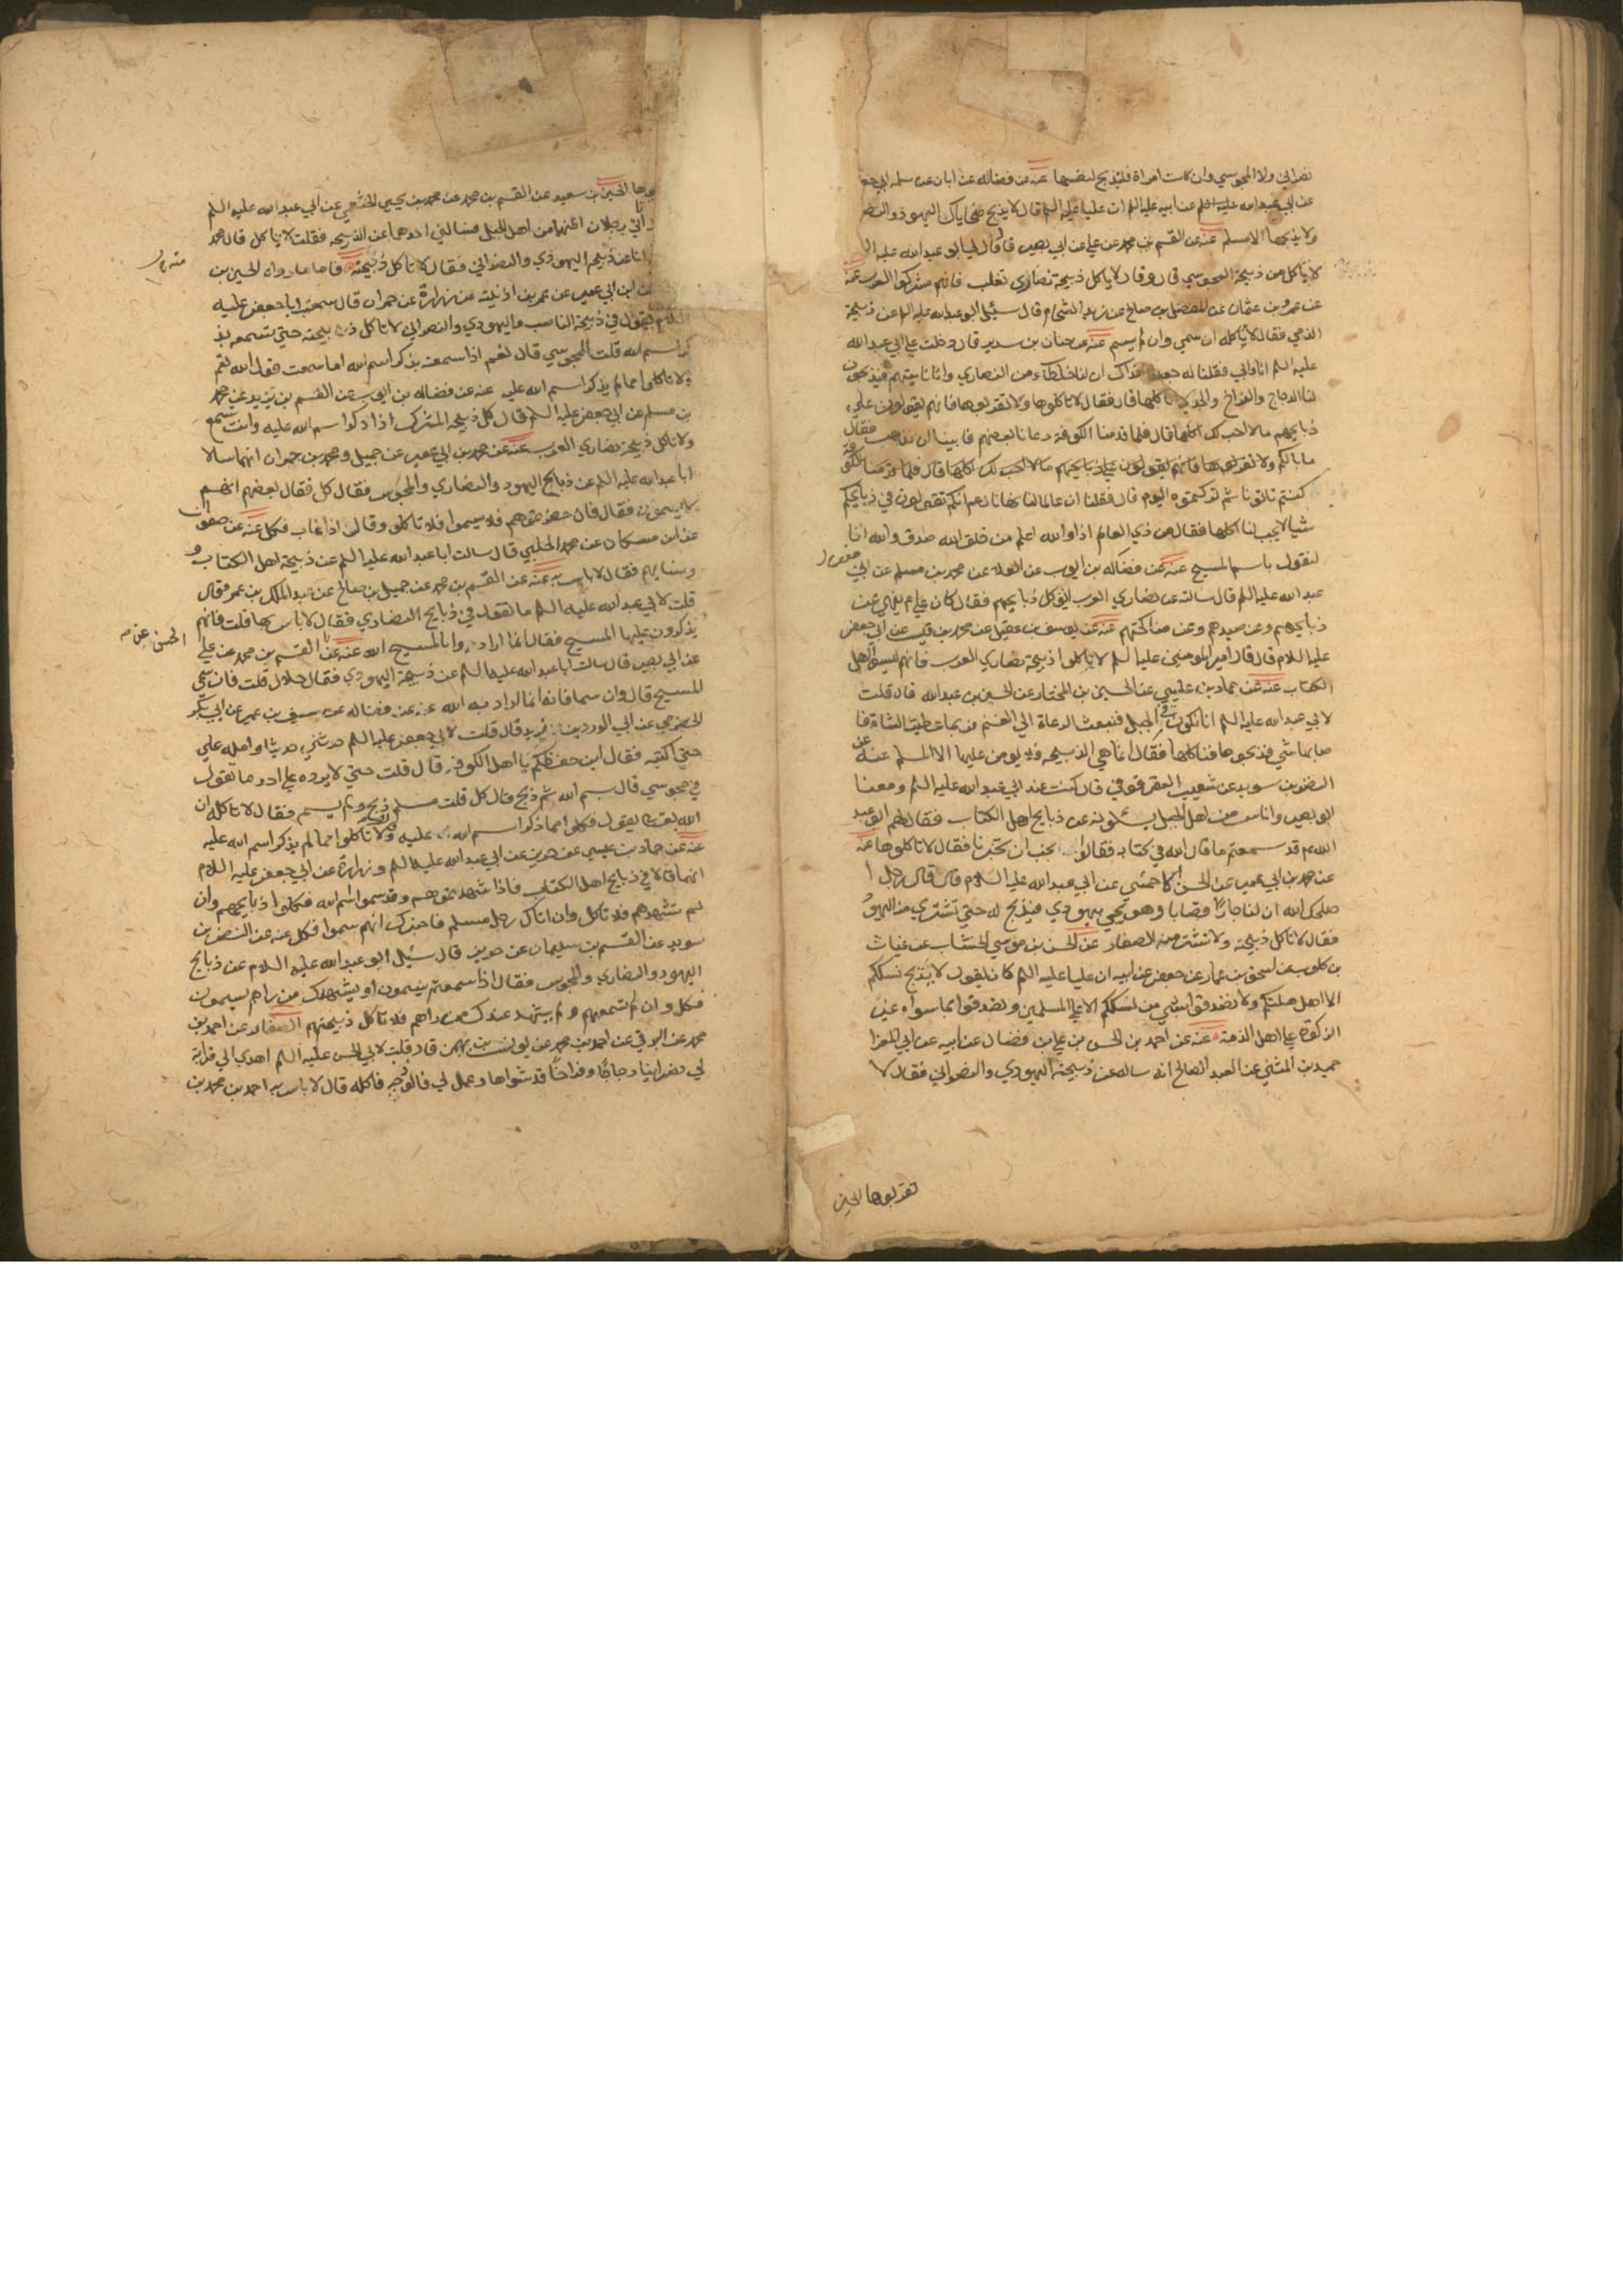 نصراني ولا المجوسي وان كانت امراة فليذبح لنفسها عنه عن فضاله عن ابان عن سلمه ابي جعفر
عن ابي عبد الله عليه السلم عن ابيه عليه السلم ان عليا عليه السلم قال لا يذبح ضحاياك اليهود والنصا
ولا يذبحها الا مسلم عنه عن القسم بن محمد عن علي عن ابي بصير قال قال لي ابو عبد الله عليه ال
لا تاكل من ذبيحة المجوسي قال وقال لا ياكل ذبيحة نصاري تغلب فانهم مشركوا العرب عنه
عن عمرو بن عثمان عن المفضل بن صالح عن زيد الشحام قال سئل ابو عبد الله عليه السلم عن ذبيحة
الذمي فقال لا تاكله ان سمي وان لم يسم عنه عن حنان بن سدير قال دخلت علي ابي عبد الله
عليه السلم انا وابي فقلنا له جعلنا فداك ان لنا خلطاء من النصاري وانا ناتيهم فيذبحون
لنا الدجاج والفراخ والجدي ناكلها قال فقال لا تاكلوها ولا تقربوها فانهم يقولون علي
ذبايحهم ما لا احب لك اكلها قال فلما قدمنا الكوفة دعانا بعضهم فابينا ان نذهب فقال
ما بالكم ولا تقربوها فانهم يقولون علي ذبايحهم ما لا احب لك اكلها قال فلما قدمنا الكوفة
كنتم تاتونا ثم تركتموه اليوم قال فقلنا ان عالما لنا نهانا زعم انكم تقولون في ذبايحكم
شيا لا يحب لنا اكلها فقال من ذي العالم اذا والله اعلم من خلق الله صدق والله انا
لنقول باسم المسيح عنه عن فضاله بن ايوب عن العلا عن محمد بن مسلم عن ابي جعفر
عبد الله عليه السلم قال سالته عن نصاري العرب اتوكل ذبايحهم فقال كان علي ع ينهي عن
ذبايحهم وعن صيدهم وعن مناكحتهم عنه عن يوسف بن عقيل عن محمد بن قيس عن ابي جعفر
عليه السلام قال قال امير المومنين عليه السلم لا تاكلوا ذبيحة نصاري العرب فانهم ليسوا اهل
الكتاب عنه عن حماد بن عيسي عن الحسين بن المختار عن الحسين بن عبد الله قال قلت
لابي عبد الله عليه السلم انا نكون في الجبل فنبعث الرعاة الي الغنم فربما عطبت الشاة فا
صابها شي فذبحوها فناكلها فقال انما هي الذبيحه فلا يومن عليها الا المسلم عنه عن
النضر بن سويد عن شعيب العقرقوفي قال كنت عند ابي عبد الله عليه السلم ومعنا
ابو بصير واناس من اهل الجبل يسئلونه عن ذبايح اهل الكتاب فقال لهم ابو عبد
الله ع قد سمعتم ما قال الله في كتابه فقالوا نحب ان تخبرنا فقال لا تاكلوها عنه
عن محمد بن ابي عمير عن الحسن الاحمسي عن ابي عبد الله عليه السلام قال قال رجل ا
صلحك الله ان لنا جارا قصابا وهو يجي بيهودي فيذبح له حتي تشتري منه اليهود
فقال لا تاكل ذبيحته ولا تشتر منه الصفار عن الحسن بن موسي الخشاب عن غياث
بن كلوب عن اسحق بن عمار عن جعفر عن ابيه ان عليا عليه السلم كان يقول لا يذبح نسككم
الا اهل ملتكم ولا تصدقوا بشي من نسككم الا علي المسلمين وتصدقوا بما سواه غير
الزكوة علي اهل الذمة عنه عن احمد بن الحسن بن علي بن فضال عن ابيه عن ابي المغرا
حميد بن المثني عن العبد الصالح انه ساله عن ذبيحة اليهودي والنصراني فقال لا
تقربوها الحسين
ها الحسين بن سعيد عن القسم بن محمد عن محمد بن يحيي الخثعمي عن ابي عبد الله عليه السلم
اتاني رجلان اظنهما من اهل الجبل فسالني احدهما عن الذبيحه فقلت لا ياكل قال محمد
انا عن ذبيحه اليهودي والنصراني فقال لا تاكل ذبيحته فاما ما رواه الحسين بن
ابن ابي عمير عن عمر بن اذينه عن زرارة عن حمران قال سمعت ابا جعفر عليه
السلام يقول في ذبيحة الناصب واليهودي والنصراني لا تاكل ذبيحته حتي تسمعه يذ
كر اسم الله قلت المجوسي قال نعم اذا سمعته يذكر اسم الله اما سمعت قول الله تعم
ولا تاكلوا مما لم يذكر اسم الله عليه عنه عن فضاله بن ايوب عن القسم بن يزيد عن محمد
بن مسلم عن ابي جعفر عليه السلم قال كل ذبيحه المشرك اذا ذكر اسم الله عليه وانت تسمع
ولا تاكل ذبيحة نصاري العرب عنه عن محمد بن ابي عمير عن جميل ومحمد بن حمران انهما سالا
ابا عبد الله عليه السلم عن ذبايح اليهود والنصاري والمجوس فقال كل فقال بعضهم انهم
لا يسمون فقال فان حضرتموهم فلم يسموا فلا تاكلوا وقال اذا غاب فكل عنه عن صفوان
عن ابن مسكان عن محمد الحلبي قال سالت ابا عبد الله عليه السلم عن ذبيحة اهل الكتاب و
ونسايهم فقال لا باس به عنه عن القسم بن محمد عن جميل بن صالح عن عبد الملك بن عمر وقال
قلت لابي عبد الله عليه السلم ما تقول في ذبايح النصاري فقال لا باس بها قلت فانهم
يذكرون عليها المسيح فقال انما ارادوا بالمسيح الله عنه عن القسم بن محمد عن علي
عن ابي بصير قال سالت ابا عبد الله عليه السلم عن ذبيحة اليهودي فقال حلال قلت فان سمي
المسيح قال وان سما فانه انما اراد به الله عنه عن فضاله عن سيف بن عميره عن ابي بكر
الحضرمي عن ابي الورد بن زيد قال قلت لابي جعفر عليه السلم حدثني حديثا وامله علي
حتي اكتبه فقال اين حفظكم يا اهل الكوفة قال قلت حتي لا يرده علي احد ما تقول
في مجوسي قال بسم الله ثم ذبح فقال كل قلت مسلم ذبح ولم يسم فقال لا تاكله ان
الله تعالي يقول فكلوا مما ذكر اسم الله عليه ولا تاكلوا مما لم يذكر اسم الله عليه
عنه عن حماد بن عيسي عن حريز عن ابي عبد الله عليه السلم وزرارة عن ابي جعفر عليه السلام
انهما قالا في ذبايح اهل الكتاب فاذا شهدتموهم وقد سموا اسم الله فكلوا ذبايحهم وان
لم تشهدهم فلا تاكل وان اتاك رجل مسلم فاخبرك انهم سموا فكل عنه عن النضر بن
سويد عن القسم بن سليمان عن حريز قال سئل ابو عبد الله عليه السلام عن ذبايح
اليهود والنصاري والمجوس فقال اذا سمعتم يسمون او يشهد لك من راهم يسمون
فكل وان لم تسمعهم ولم يشهد عندك من راهم فلا تاكل ذبيحتهم الصفار عن احمد بن
محمد عن البرقي عن احمد بن محمد عن يونس بن بهمن قال قلت لابي الحسن عليه السلم اهدي الي قرابة
لي نصرانيا دجاجا وفراخا قد شواها وعمل لي فالوذجه فاكله قال لا باس به احمد بن محمد بن